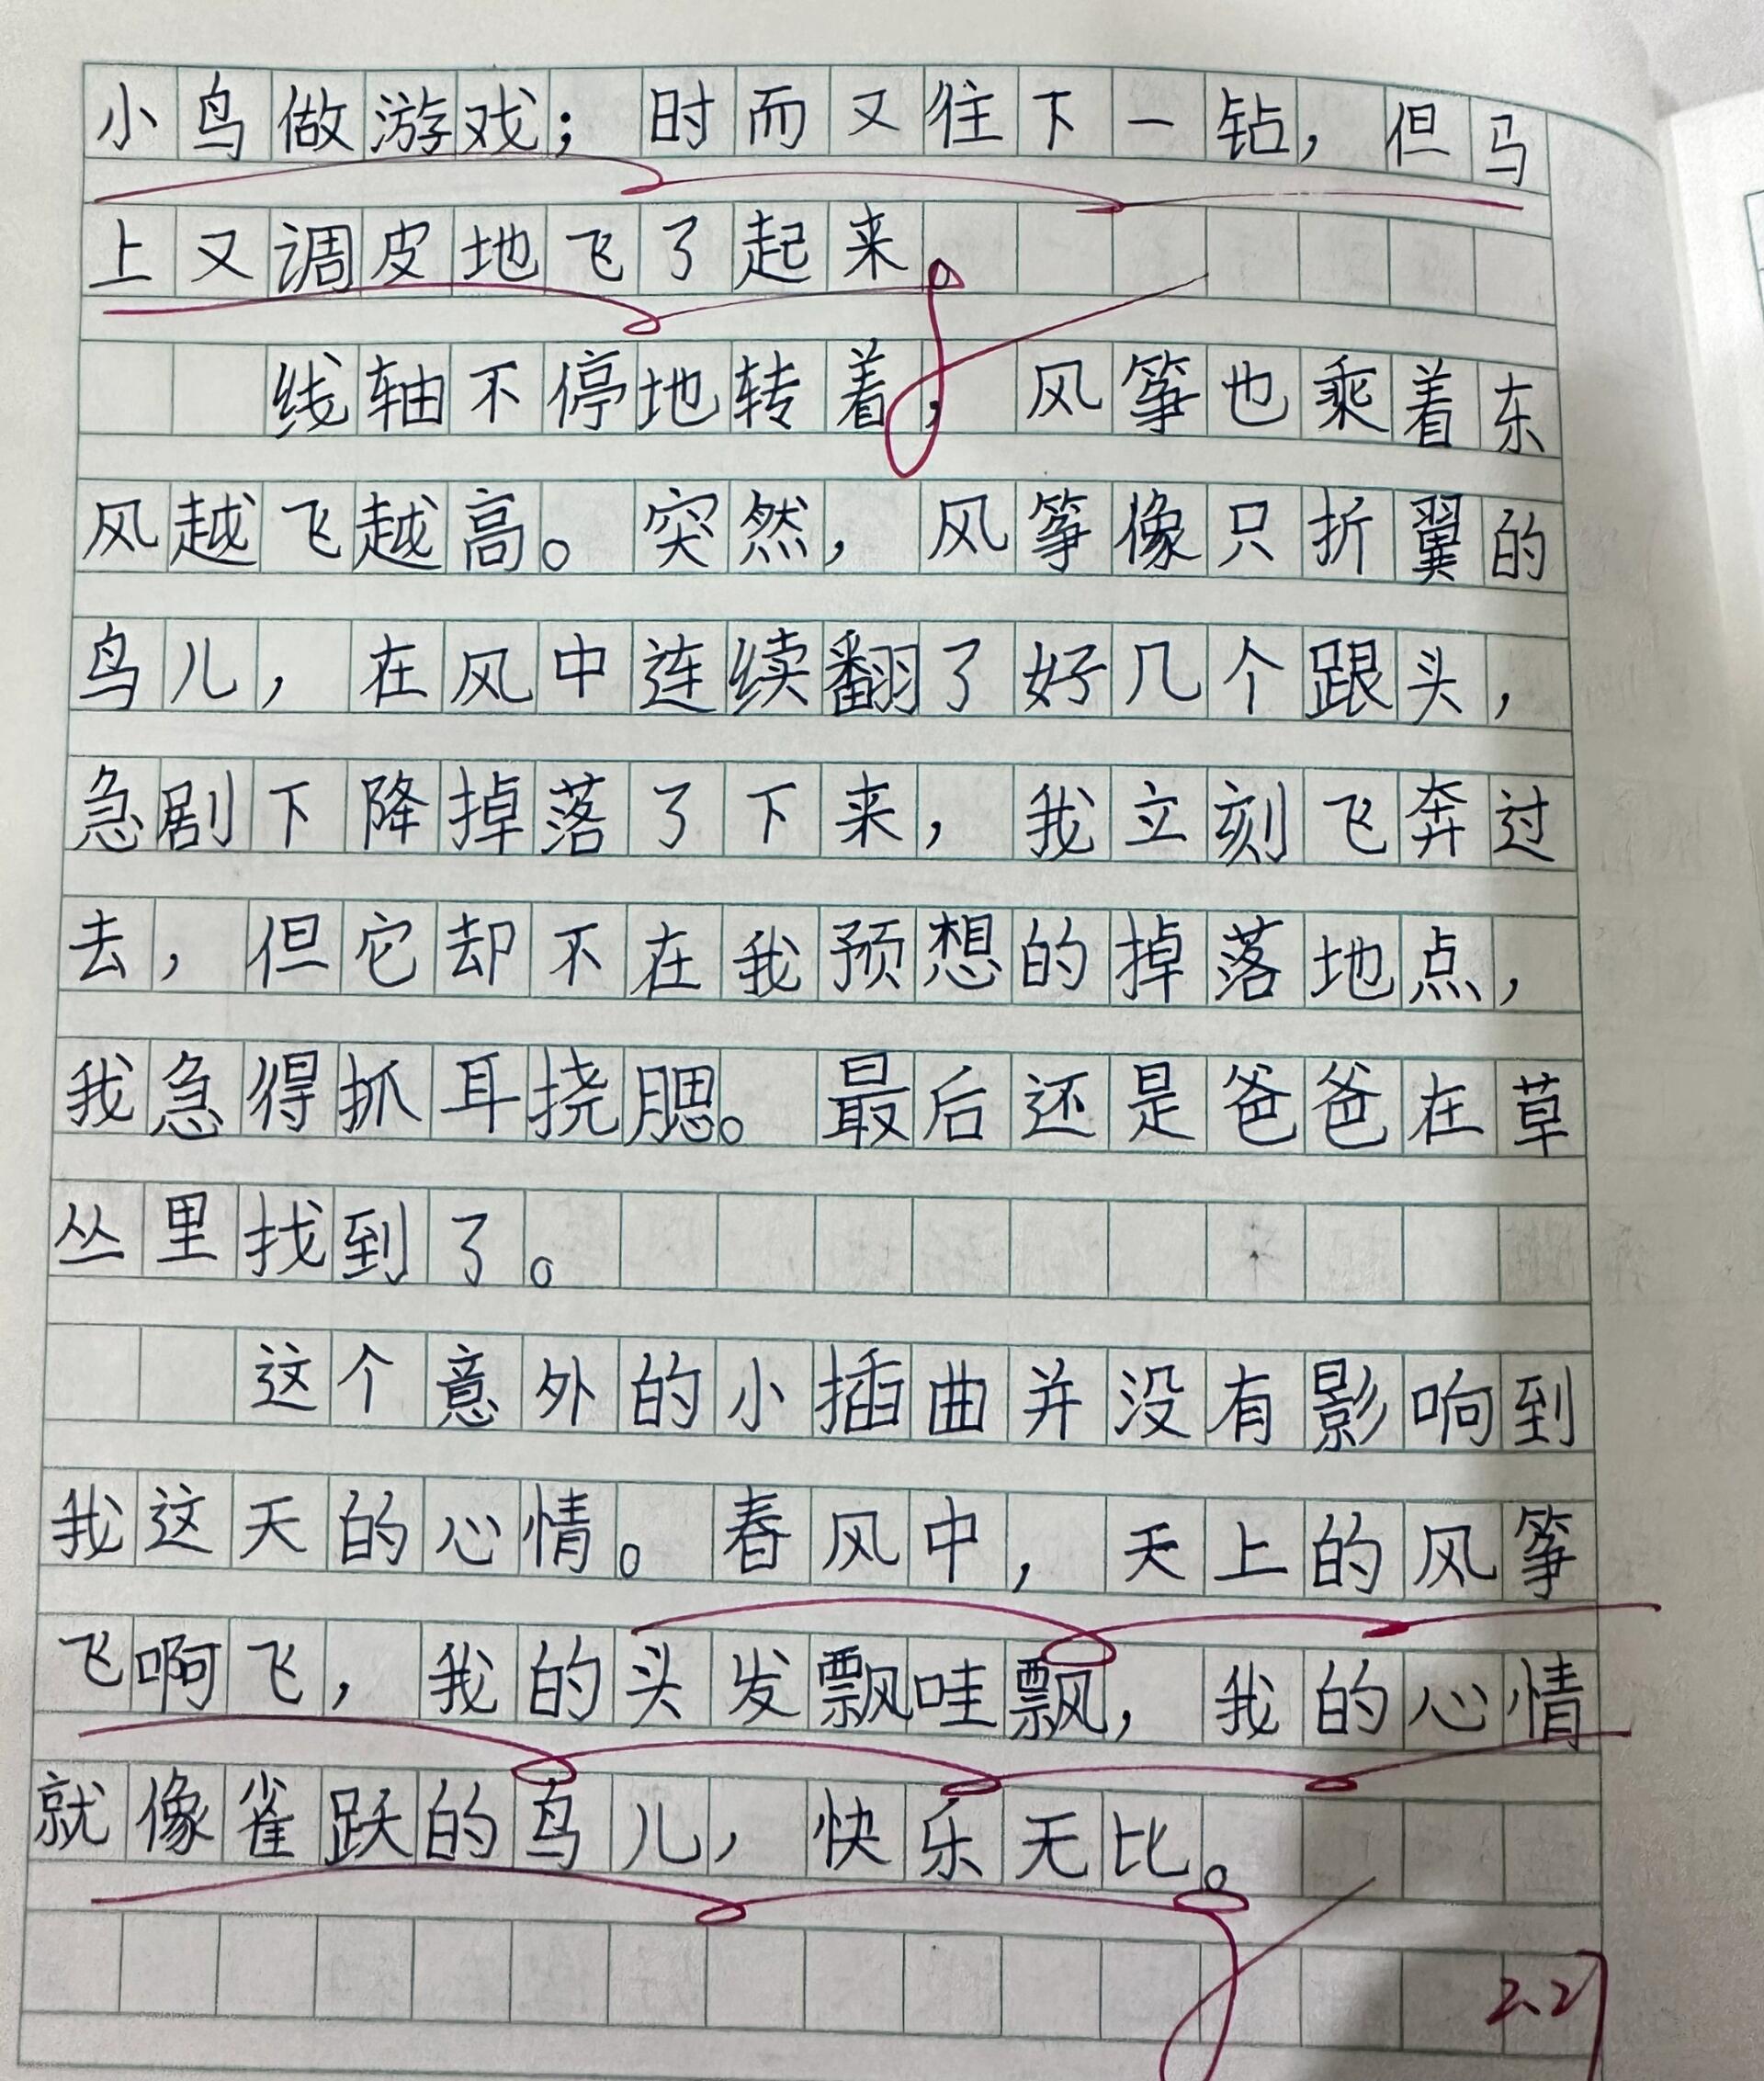 小鸟做游戏；时而又往下一钻，但马
上又调皮地飞了起来。
线轴不停地转着，风筝也乘着东
风越飞越高。突然，风筝像只折翼的
鸟儿，在风中连续翻了好几个跟头，
急剧下降掉落了下来，我立刻飞奔过
去，但它却不在我预想的掉落地点，
我急得抓耳挠腮。最后还是爸爸在草
丛里找到了。
这个意外的小插曲并没有影响到
我这天的心情。春风中，天上的风筝
飞啊飞，我的头发飘哇飘，我的心情
就像雀跃的鸟儿，快乐无比。